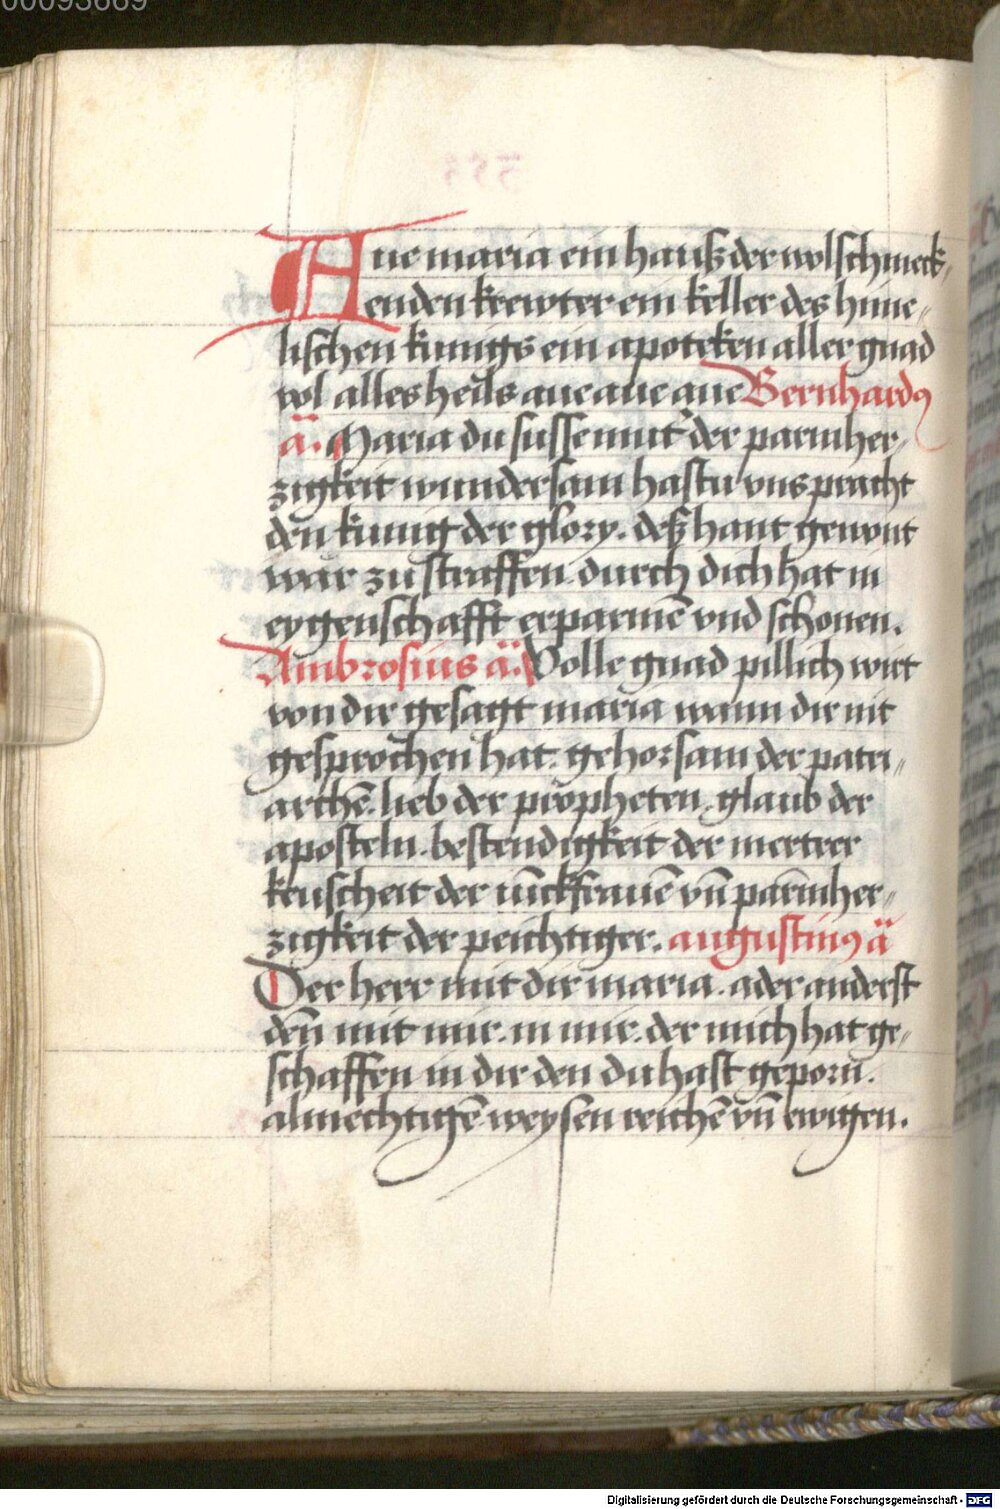 00093669
Aue maria ein hauß der wolschmeck-
enden krewter ein keller des hime-
lischen kunigs ein apoteken aller gnad
vol alles heils aue aue aue Bernhardꝯ
ä. Maria du susse mut' der parmher-
zigkeit wundersam hastu vns pracht
den kunig der glory. deß hant gewont
war zu straffen durch dich hat in
eygenschafft erparmē vnd schonen.
Ambrosius ä. Volle gnad pillich wirt
von dir gesagt maria wann dir nit
gesprochen hat. gehorsam der patri-
archē. lieb der propheten. glaub der
aposteln. bestendigkeit der mertrer
keuscheit der iūckfrauē vn̄ parmher-
zigkeit der peichtiger. augustinꝯ ä
Der herr mit dir maria. ader anderst
den mit mir. in mir. der mich hat ge-
schaffen in dir den du hast geporn.
almechtigē weysen reichē vn̄ ewigen.
Digitalisierung gefördert durch die Deutsche Forschungsgemeinschaft - DFG